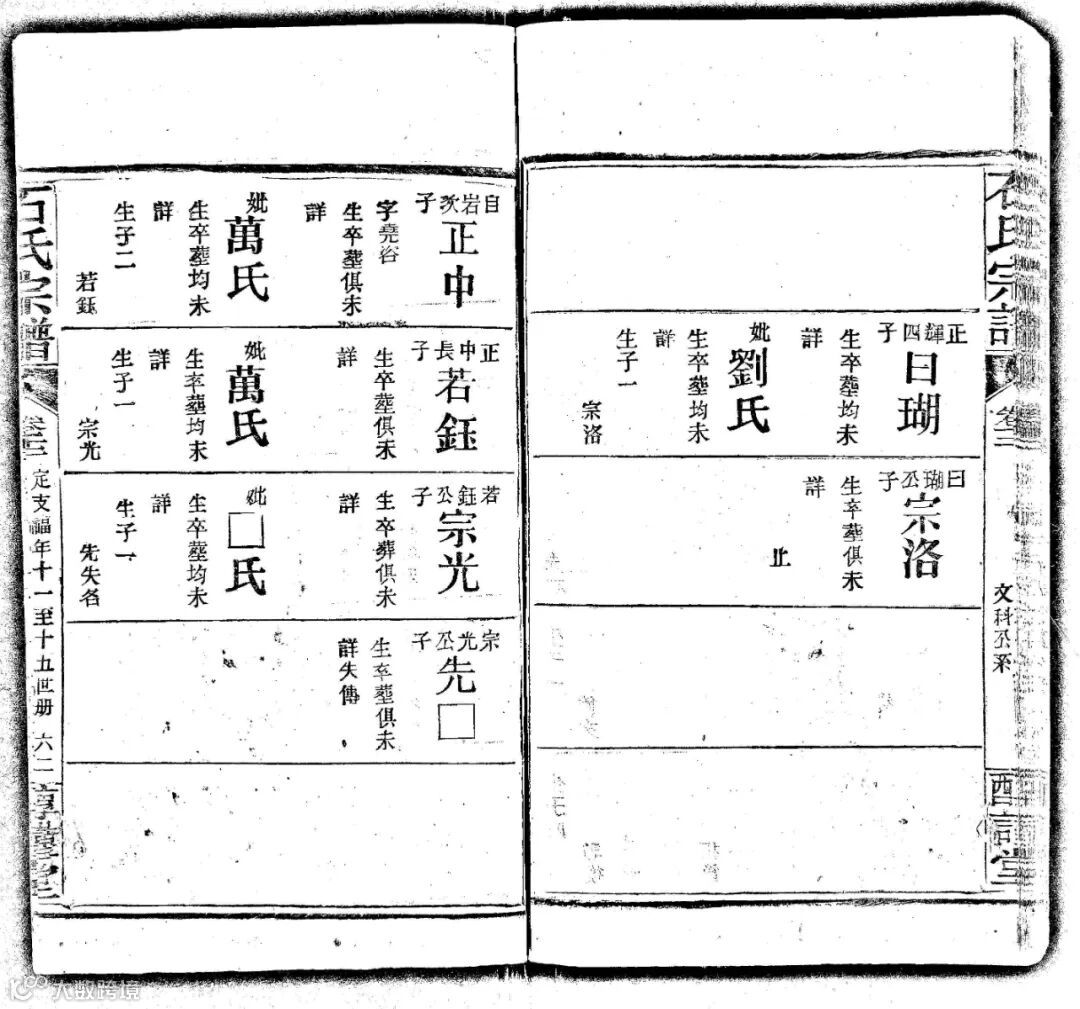 石氏宗譜
卷三
文科公系
正輝四子
曰瑚
生卒塟均未
詳
妣劉氏
生卒塟均未
詳
生子一
宗洛
曰瑚公子
宗洛
生卒塟俱未
詳
止
自岩次子
正中
字堯谷
生卒塟俱未
詳
妣萬氏
生卒塟均未
詳
生子二
若鈺
正中長子
若鈺
生卒塟俱未
詳
妣萬氏
生卒塟均未
詳
生子一
宗光
若鈺公子
宗光
生卒葬俱未
詳
妣□氏
生卒塟均未
詳
生子一
先失名
宗光公子
先□
生卒塟俱未
詳失傳
石氏宗譜
卷三
定支福年十一至十五世册
六二
大数跨境